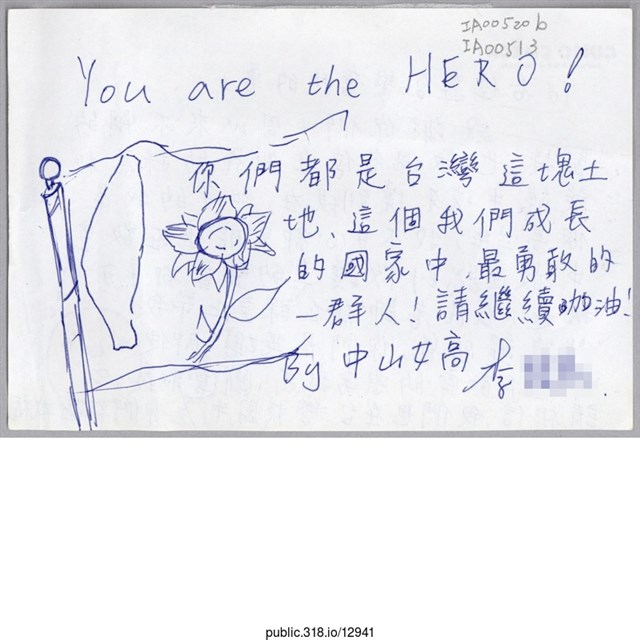 IA00520b
IA00513
You are the HERO!
你們都是台灣這塊土
地、這個我們成長
的國家中,最勇敢的
一群人!請繼續咖油!
By 中山女高 李
public.318.io/12941